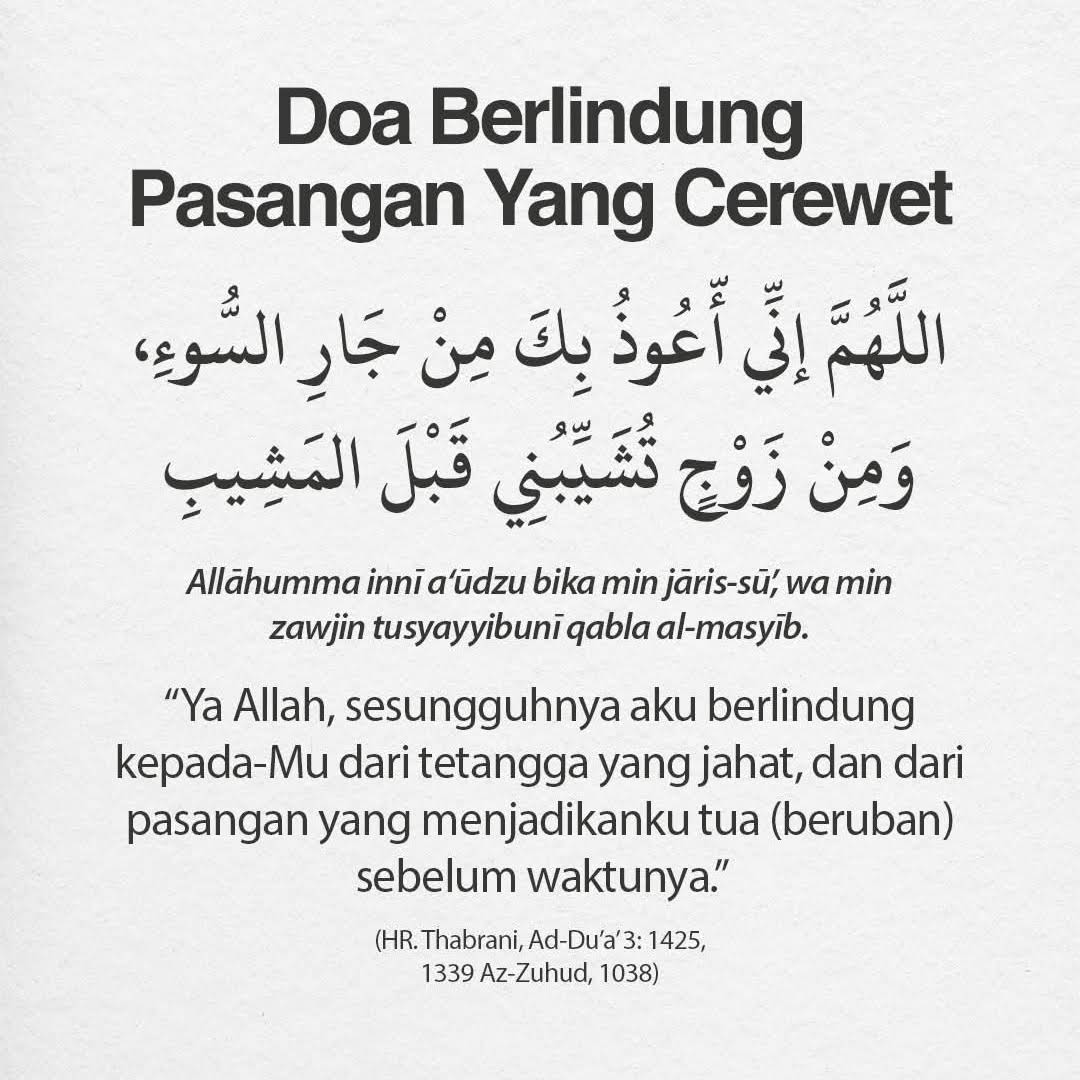 Doa Berlindung
Pasangan Yang Cerewet
اللَّهُمَّ إِنِّي أَعُوذُ بِكَ مِنْ جَارِ السُّوءِ،
وَمِنْ زَوْجٍ تُشَيِّبُنِي قَبْلَ المَشِيبِ
Allāhumma innī a‘ūdzu bika min jāris-sū’, wa min
zawjin tusyayyibunī qabla al-masyīb.
“Ya Allah, sesungguhnya aku berlindung
kepada-Mu dari tetangga yang jahat, dan dari
pasangan yang menjadikanku tua (beruban)
sebelum waktunya.”
(HR. Thabrani, Ad-Du’a’ 3: 1425,
1339 Az-Zuhud, 1038)